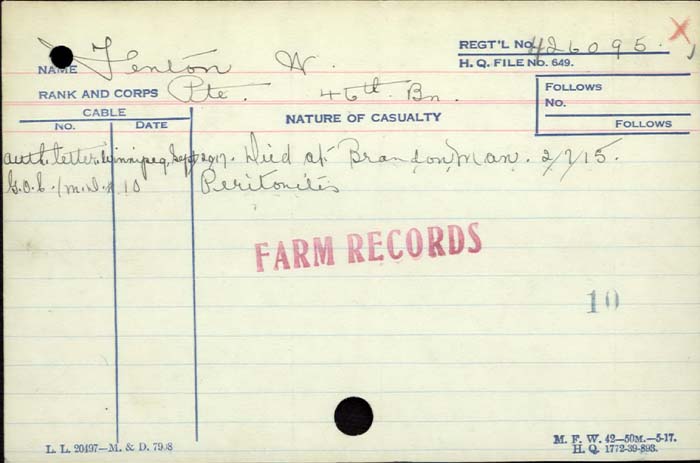 NAME Fenton W. REGT'L No. 426095.
H. Q. FILE NO. 649.
RANK AND CORPS Pte. 46th Bn.
FOLLOWS
No.
FOLLOWS
CABLE
NO. DATE
NATURE OF CASUALTY
auth. letter. Winnipeg, Sept 20/17. Died at Brandon, Man. 2/7/15.
G.O.C. / M.D. # 10 Peritonitis
FARM RECORDS
10
L. L. 20497—M. & D. 7998
M. F. W. 42—50M.—5-17.
H. Q. 1772-39-893.